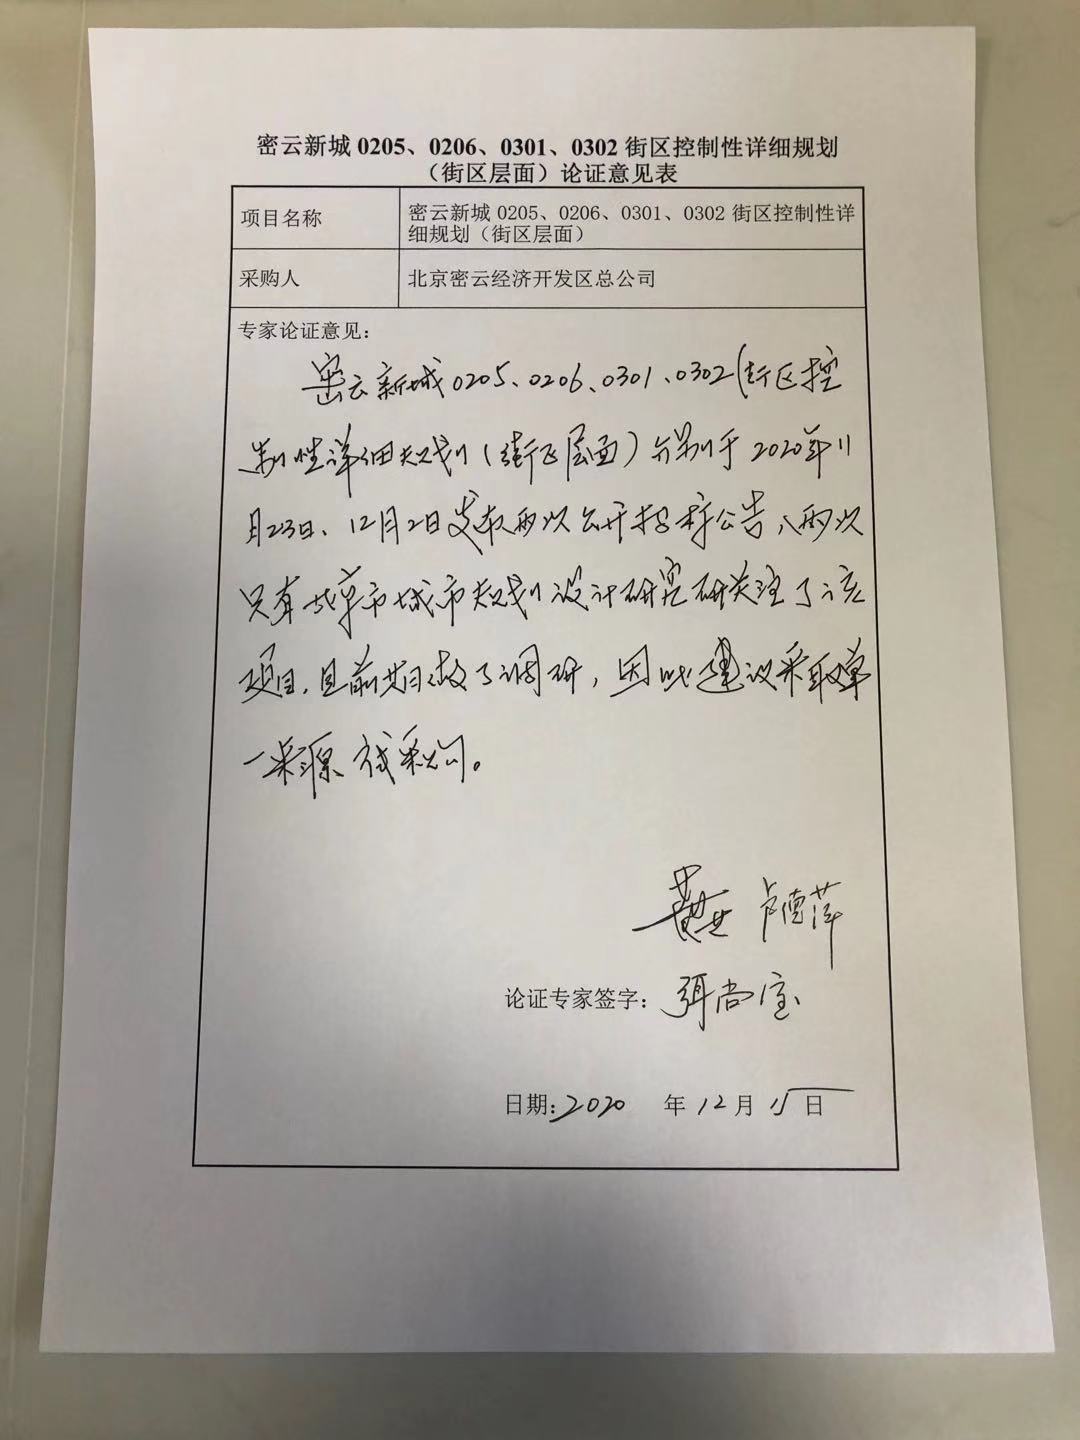 密云新城 0205、0206、0301、0302 街区控制性详细规划
（街区层面）论证意见表
项目名称
密云新城 0205、0206、0301、0302 街区控制性详
细规划（街区层面）
采购人
北京密云经济开发区总公司
专家论证意见：
密云新城0205、0206、0301、0302街区控
制性详细规划（街区层面）分别于2020年11
月23日、12月2日发布两次公开招标公告，两次
只有北京市城市规划设计研究研关注了该
项目，且前期做了调研，因此建议采取单
一来源方式采购。
卢德萍
论证专家签字：
张尚宝
日期：2020 年 12 月 15 日